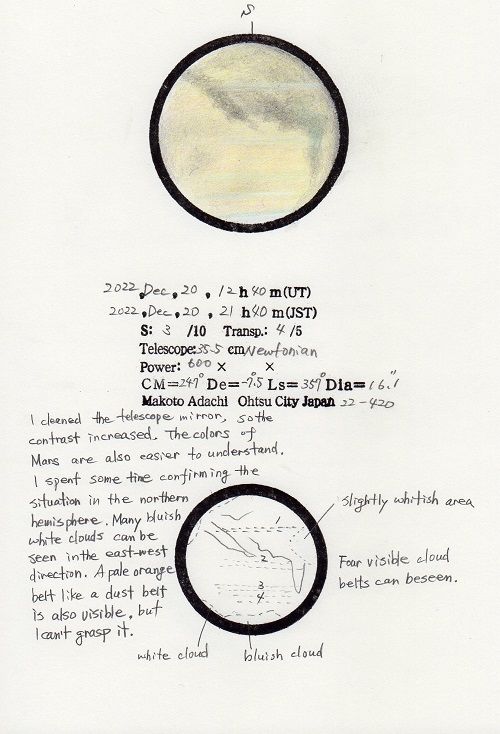 S
2022, Dec, 20, 12 h 40 m (UT)
2022, Dec, 20, 21 h 40 m (JST)
S: 3 /10 Transp.: 4 /5
Telescope: 35.5 cm Newtonian
Power: 600 × ×
CM=247° De=-7.5° Ls=357° Dia=16.1"
Makoto Adachi Ohtsu City Japan 22-420
I cleaned the telescope mirror, so the
contrast increased. The colors of
Mars are also easier to understand.
I spent some time confirming the
situation in the northern
hemisphere. Many bluish
white clouds can be
seen in the east-west
direction. A pale orange
belt like a dust belt
is also visible, but
I can't grasp it.
slightly whitish area
Four visible cloud
belts can be seen.
1
2
3
4
white cloud
bluish cloud